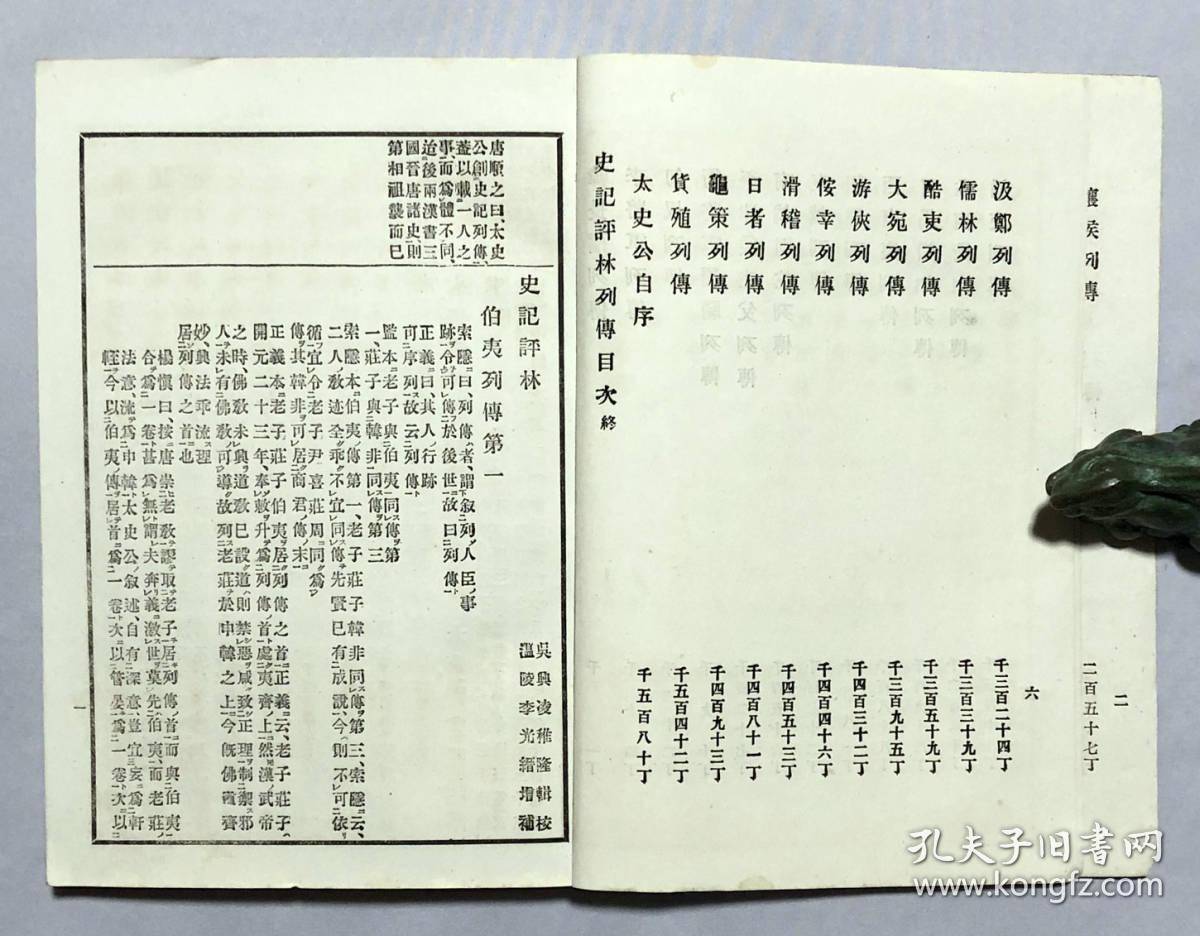 穰侯列傳
二百五十七丁
二
六
汲鄭列傳　千三百二十四丁
儒林列傳　千三百三十九丁
酷吏列傳　千三百五十九丁
大宛列傳　千三百九十五丁
游俠列傳　千四百三十二丁
佞幸列傳　千四百四十六丁
滑稽列傳　千四百五十三丁
日者列傳　千四百八十一丁
龜策列傳　千四百九十三丁
貨殖列傳　千五百四十二丁
太史公自序　千五百八十丁
史記評林列傳目次終
唐順之曰、太史
公創史記列傳、
蓋以載一人之
事、而爲體不同、
迨後兩漢書三
國晉唐諸史則
第相祖襲而已
史記評林
吳興凌稚隆輯校
溫陵李光縉增補
伯夷列傳第一
索隱曰、列傳者、謂敘列人臣事
跡、令可傳於後世、故曰列傳
正義曰、其人行跡
可序列、故云列傳
監本老子與伯夷同傳第
一、莊子與韓非同傳第三
索隱本伯夷傳第一、老子莊子韓非同傳第三、索隱云、
二人敎迹全乖、不宜同傳、先賢已有成說、今則不可依
循、宜令老子尹喜莊周同爲
傳、其韓非可居商君傳末
正義本老子莊子伯夷居列傳之首、正義云、老子莊子
開元二十三年、奉敕升爲列傳首、處夷齊上、然漢武帝
之時、佛敎未興、道敎已設、道則禁惡、咸致正理、制禦邪
人、未有佛敎可導、故列老莊於申韓之上、今旣佛道齊
妙、興法乖流、理
居列傳之首也
楊愼曰、按唐崇老敎、謬取老子居列傳首、而與伯夷
合爲一卷、甚爲無謂、夫奔義激世、莫先伯夷、而老莊
法意、流爲申韓、太史公敘述、自有深意、豈宜妄爲軒
輊、今以伯夷傳居首爲一卷、次以管晏爲一卷、次以
一
孔夫子旧書网
www.kongfz.com